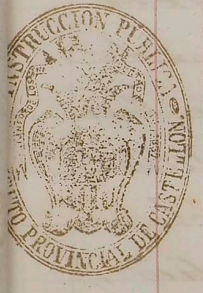 INSTRUCCION PUBLICA
TO PROVINCIAL DE CASTELLON